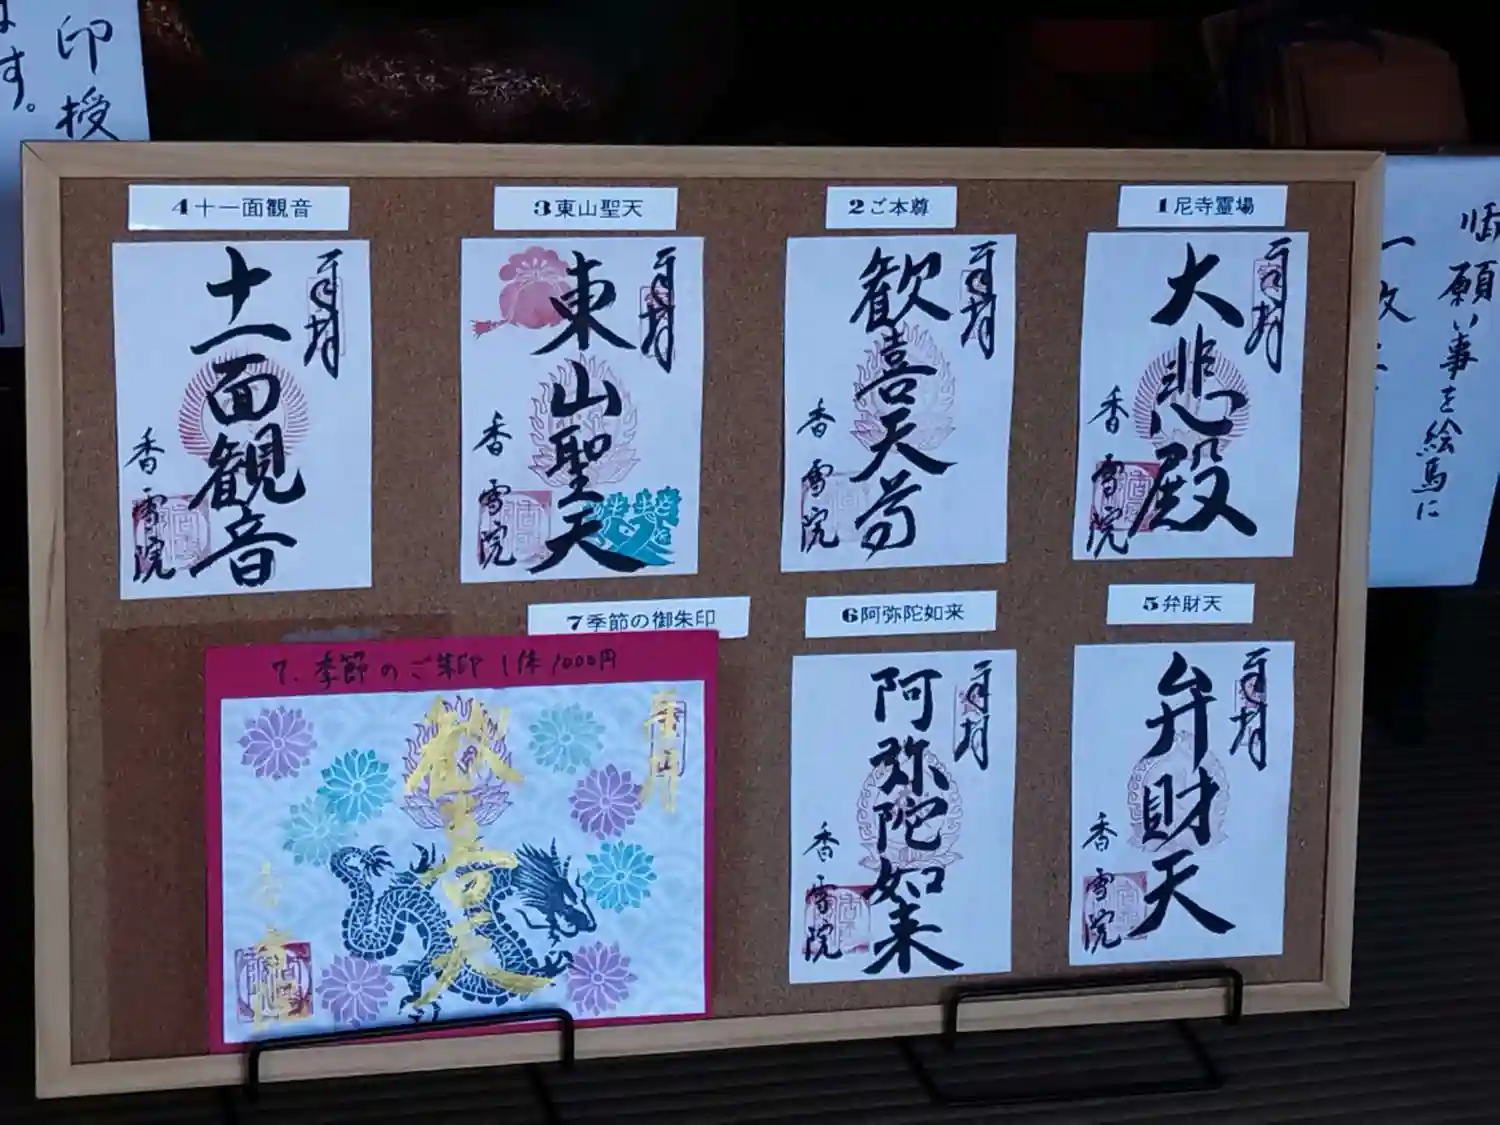 印授
ます。
1尼寺霊場
大悲殿
香雪院
2ご本尊
歓喜天尊
香雪院
3東山聖天
東山聖天
香雪院
4十一面観音
十一面観音
香雪院
5弁財天
弁財天
香雪院
6阿弥陀如来
阿弥陀如来
香雪院
7季節の御朱印
7.季節のご朱印 1体1000円
歓喜天
願い事を絵馬に